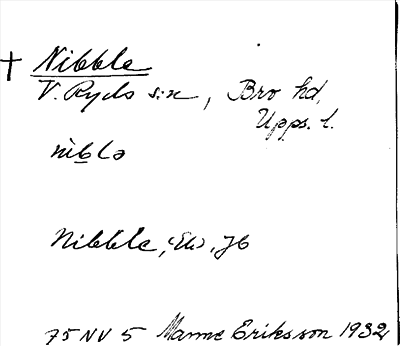 † Nibble
V. Ryds s:n, Bro hd,
Upps. l.
nìbla
Nibble, (Ek), Jb
75 NV 5 Manne Eriksson 1932